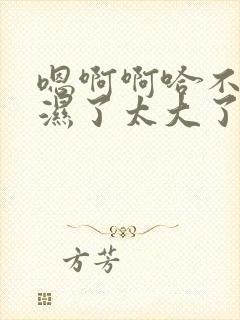 嗯啊啊哈不
濕了太大了
方芳